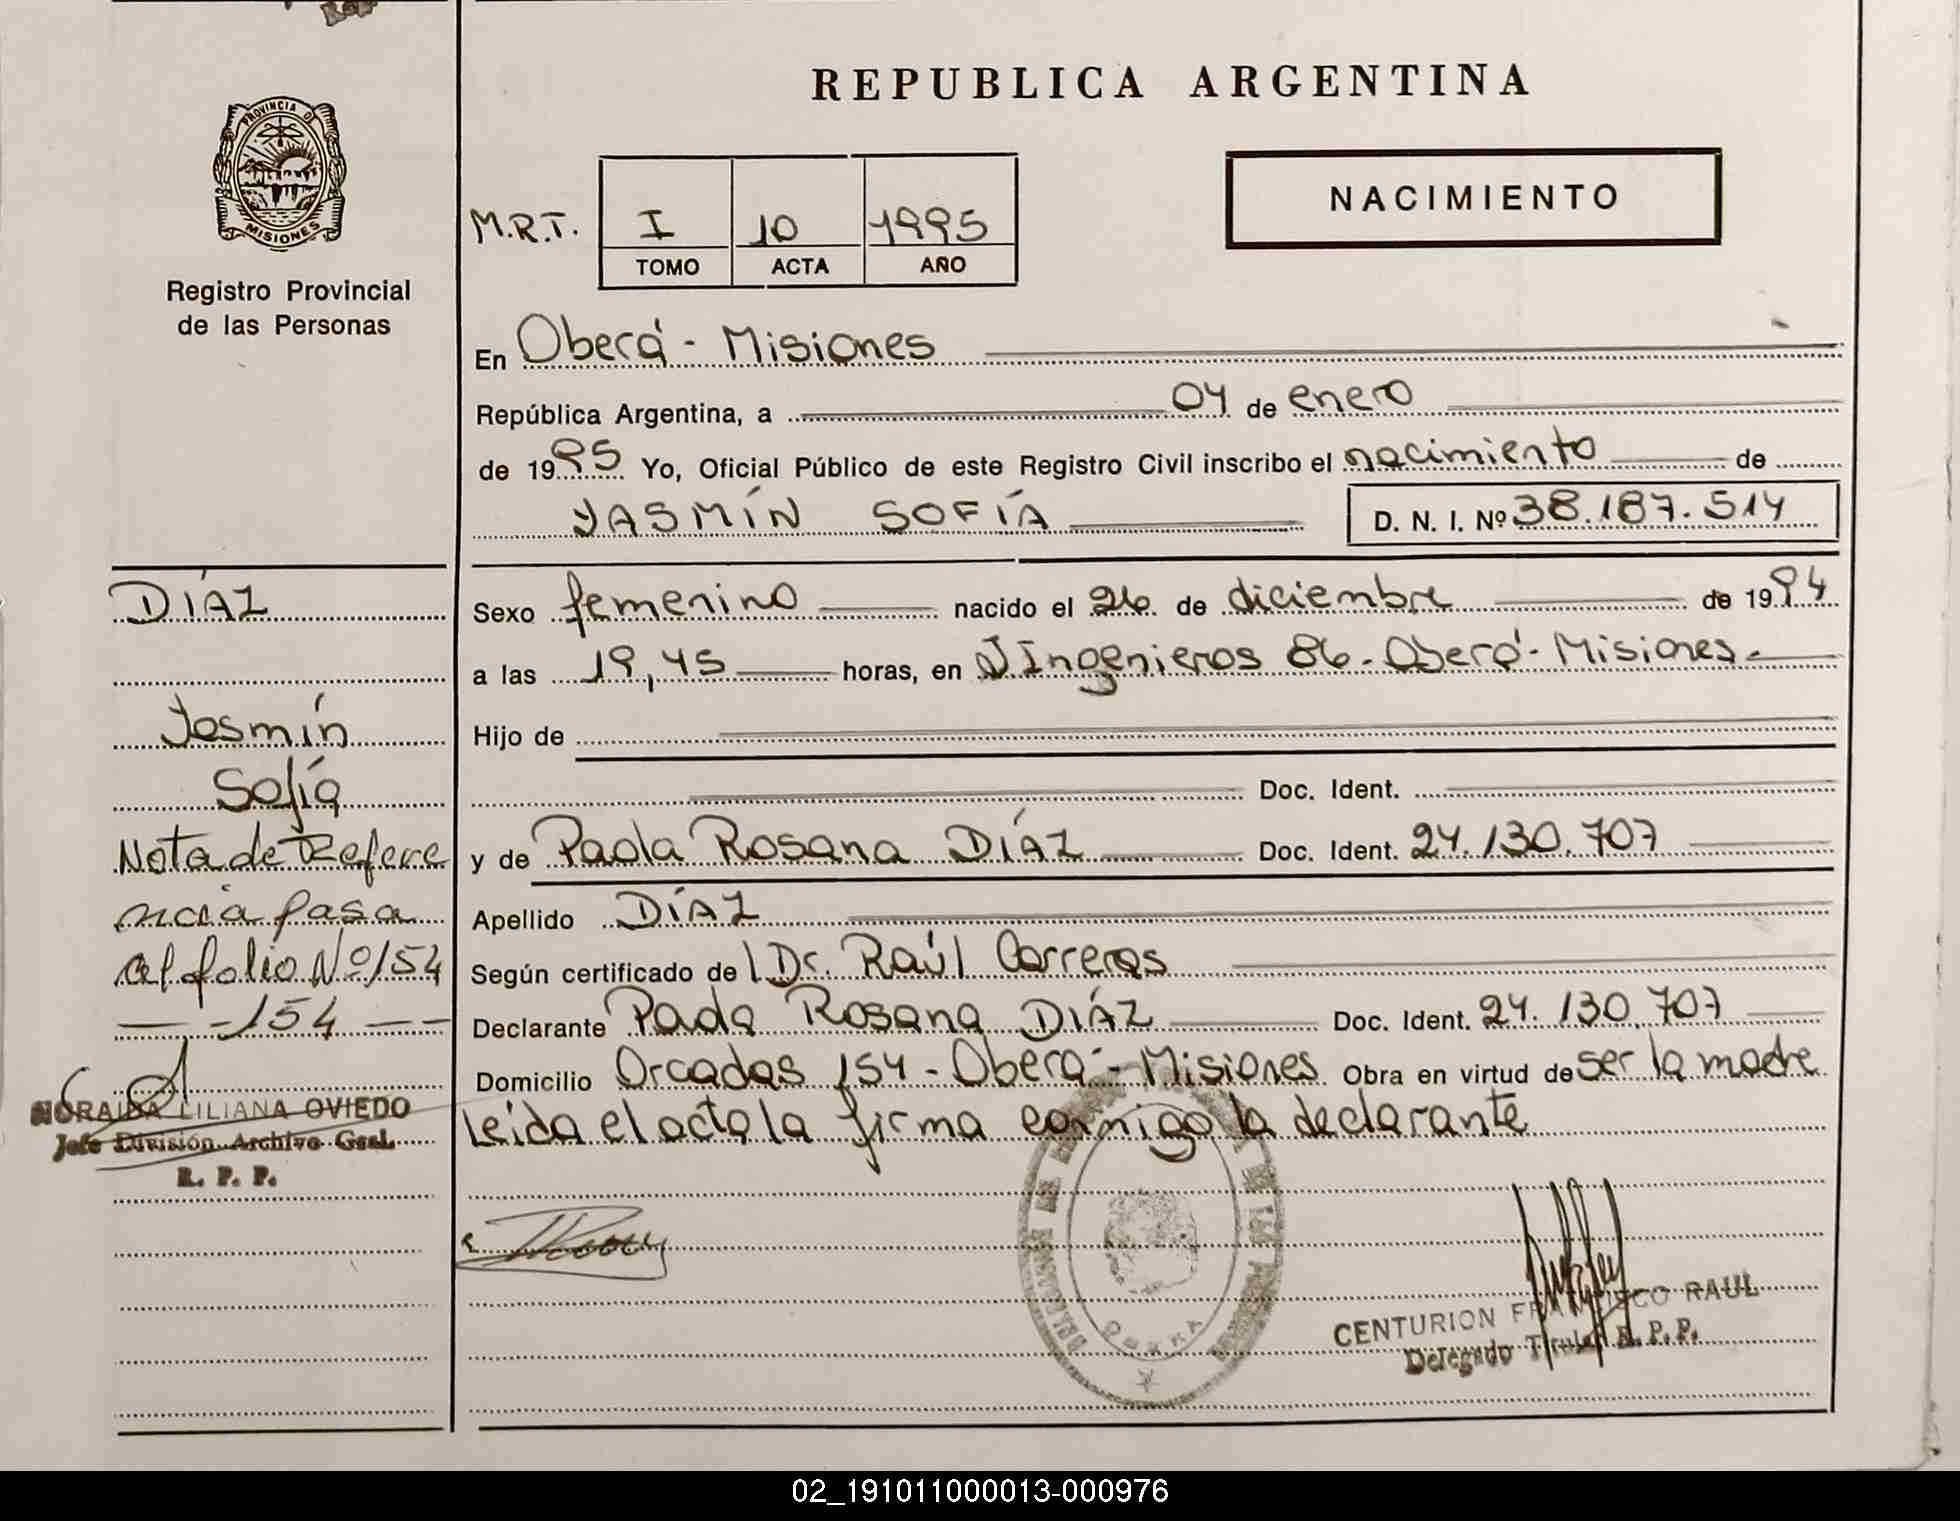 REPUBLICA ARGENTINA
PROVINCIA DE MISIONES
Registro Provincial
de las Personas
NACIMIENTO
M.R.T. I 10 1995
TOMO ACTA AÑO
En Oberá - Misiones
República Argentina, a 04 de enero
de 1995 Yo, Oficial Público de este Registro Civil inscribo el nacimiento de
YASMÍN SOFÍA D. N. I. Nº 38.187.514
DÍAZ
Yasmín
Sofía
Nota de Refere
ncia pasa
al folio Nº 154
- -154 - -
NORAIDA LILIANA OVIEDO
Jefe División Archivo Gral.
R. P. P.
Sexo femenino nacido el 26 de diciembre de 1994
a las 19,45 horas, en J Ingenieros 86 - Oberá - Misiones -
Hijo de
Doc. Ident.
y de Paola Rosana DÍAZ Doc. Ident. 24.130.707
Apellido DÍAZ
Según certificado de Dr. Raúl Carreras
Declarante Paola Rosana DÍAZ Doc. Ident. 24.130.707
Domicilio Orcadas 154 - Oberá - Misiones Obra en virtud de ser la madre
Leída el acta la firma conmigo la declarante
OBERA
CENTURION FRANCISCO RAUL
Delegado Titular R. P. P.
02_191011000013-000976